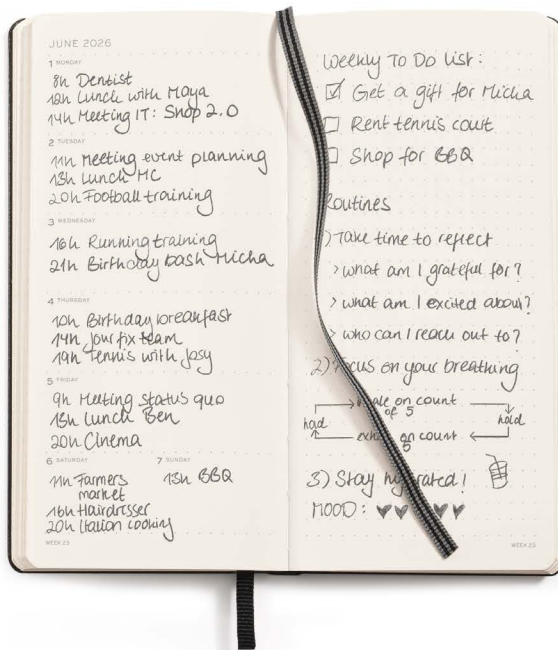 JUNE 2026
1 MONDAY
8h Dentist
12h Lunch with Maya
14h Meeting IT: Shop 2.0
2 TUESDAY
11h Meeting event planning
13h Lunch MC
20h Football training
3 WEDNESDAY
16h Running training
21h Birthday bash Micha
4 THURSDAY
10h Birthday breakfast
14h Jour fix team
19h Tennis with Josy
5 FRIDAY
9h Meeting status quo
13h Lunch Ben
20h Cinema
6 SATURDAY
11h Farmers
market
16h Hairdresser
20h Italian cooking
7 SUNDAY
13h BBQ
WEEK 23
Weekly To Do List:
Get a gift for Micha
Rent tennis court
Shop for BBQ
Routines
) Take time to reflect
> what am I grateful for?
> what am I excited about?
> who can I reach out to?
2) Focus on your breathing
on count
of 5
hold
hold
on count
5
3) Stay hydrated!
MOOD:
WEEK 23